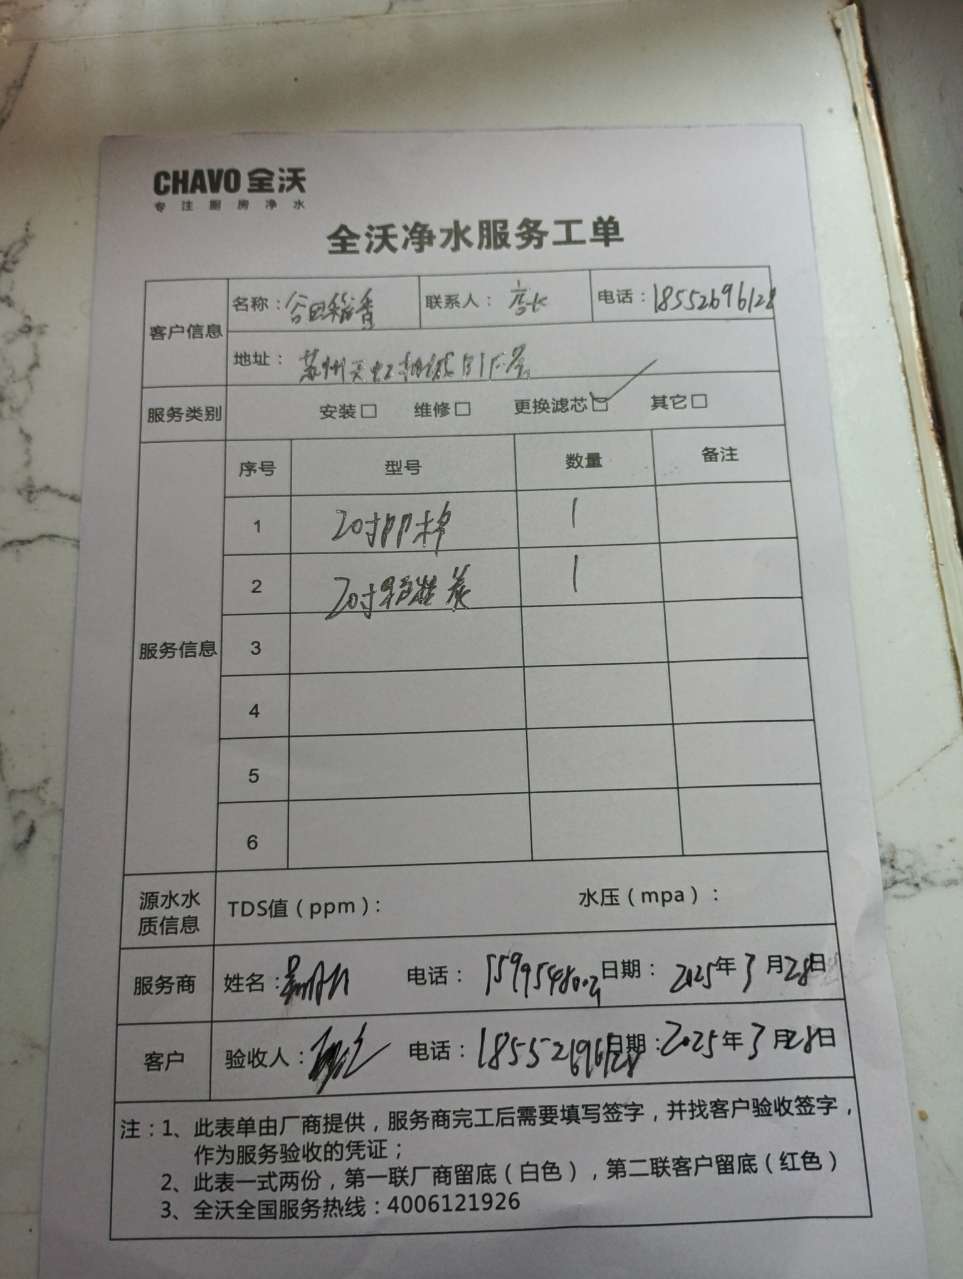 CHAVO 全沃
专注厨房净水
全沃净水服务工单
客户信息
名称：谷田稻香 联系人：店长 电话：18552696128
地址：苏州天虹
服务类别 安装□ 维修□ 更换滤芯☑ 其它□
服务信息
序号 型号 数量 备注
1 20寸PP棉 1
2 20寸颗粒炭 1
3
4
5
6
源水水质信息 TDS值（ppm）： 水压（mpa）：
服务商 姓名： 电话： 日期：2025年3月28日
客户 验收人： 电话：18552696128 日期：2025年3月28日
注：1、此表单由厂商提供，服务商完工后需要填写签字，并找客户验收签字，
作为服务验收的凭证；
2、此表一式两份，第一联厂商留底（白色），第二联客户留底（红色）
3、全沃全国服务热线：4006121926